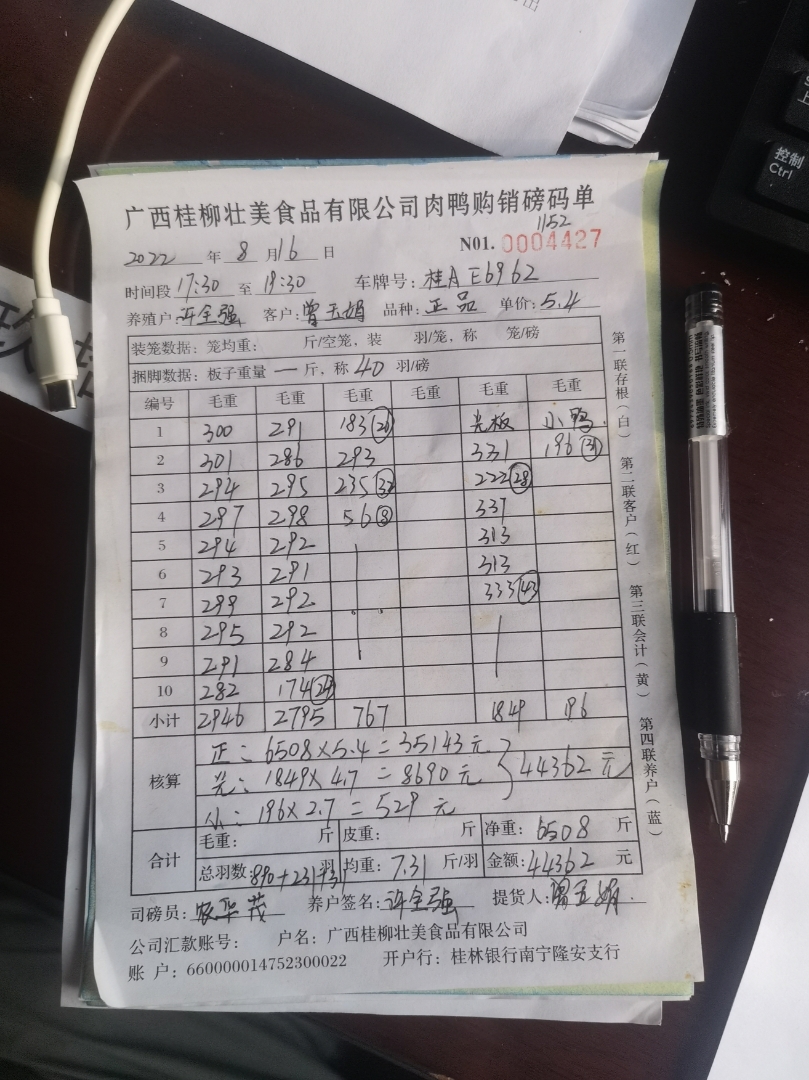 控制
Ctrl
广西桂柳壮美食品有限公司肉鸭购销磅码单
1152
2022 年 8 月 16 日 N01. 0004427
时间段 17:30 至 19:30 车牌号: 桂A E6962
养殖户: 许全强 客户: 曾玉娟 品种: 正品 单价: 5.4
装笼数据: 笼均重: 斤/空笼, 装 羽/笼, 称 笼/磅
捆脚数据: 板子重量 一 斤, 称 40 羽/磅
编号 毛重 毛重 毛重 毛重 毛重 毛重
1 300 291 183 光板 小鸭
2 301 286 293 331 196 31
3 294 295 235 32 222 28
4 297 298 56 8 337
5 294 292 313
6 293 291 313
7 299 292 333 43
8 295 292
9 291 284
10 282 174 24
小计 2946 2795 767 1849 196
核算
正: 6508×5.4=35143元
光: 1849×4.7=8690元 44362元
小: 196×2.7=529元
合计
毛重: 斤 皮重: 斤 净重: 6508 斤
总羽数: 890+231+31 羽 均重: 7.31 斤/羽 金额: 44362 元
司磅员: 农华茂 养户签名: 许全强 提货人: 曾玉娟
公司汇款账号: 户名: 广西桂柳壮美食品有限公司
账 户: 660000014752300022 开户行: 桂林银行南宁隆安支行
第一联存根(白) 第二联客户(红) 第三联会计(黄) 第四联养户(蓝)